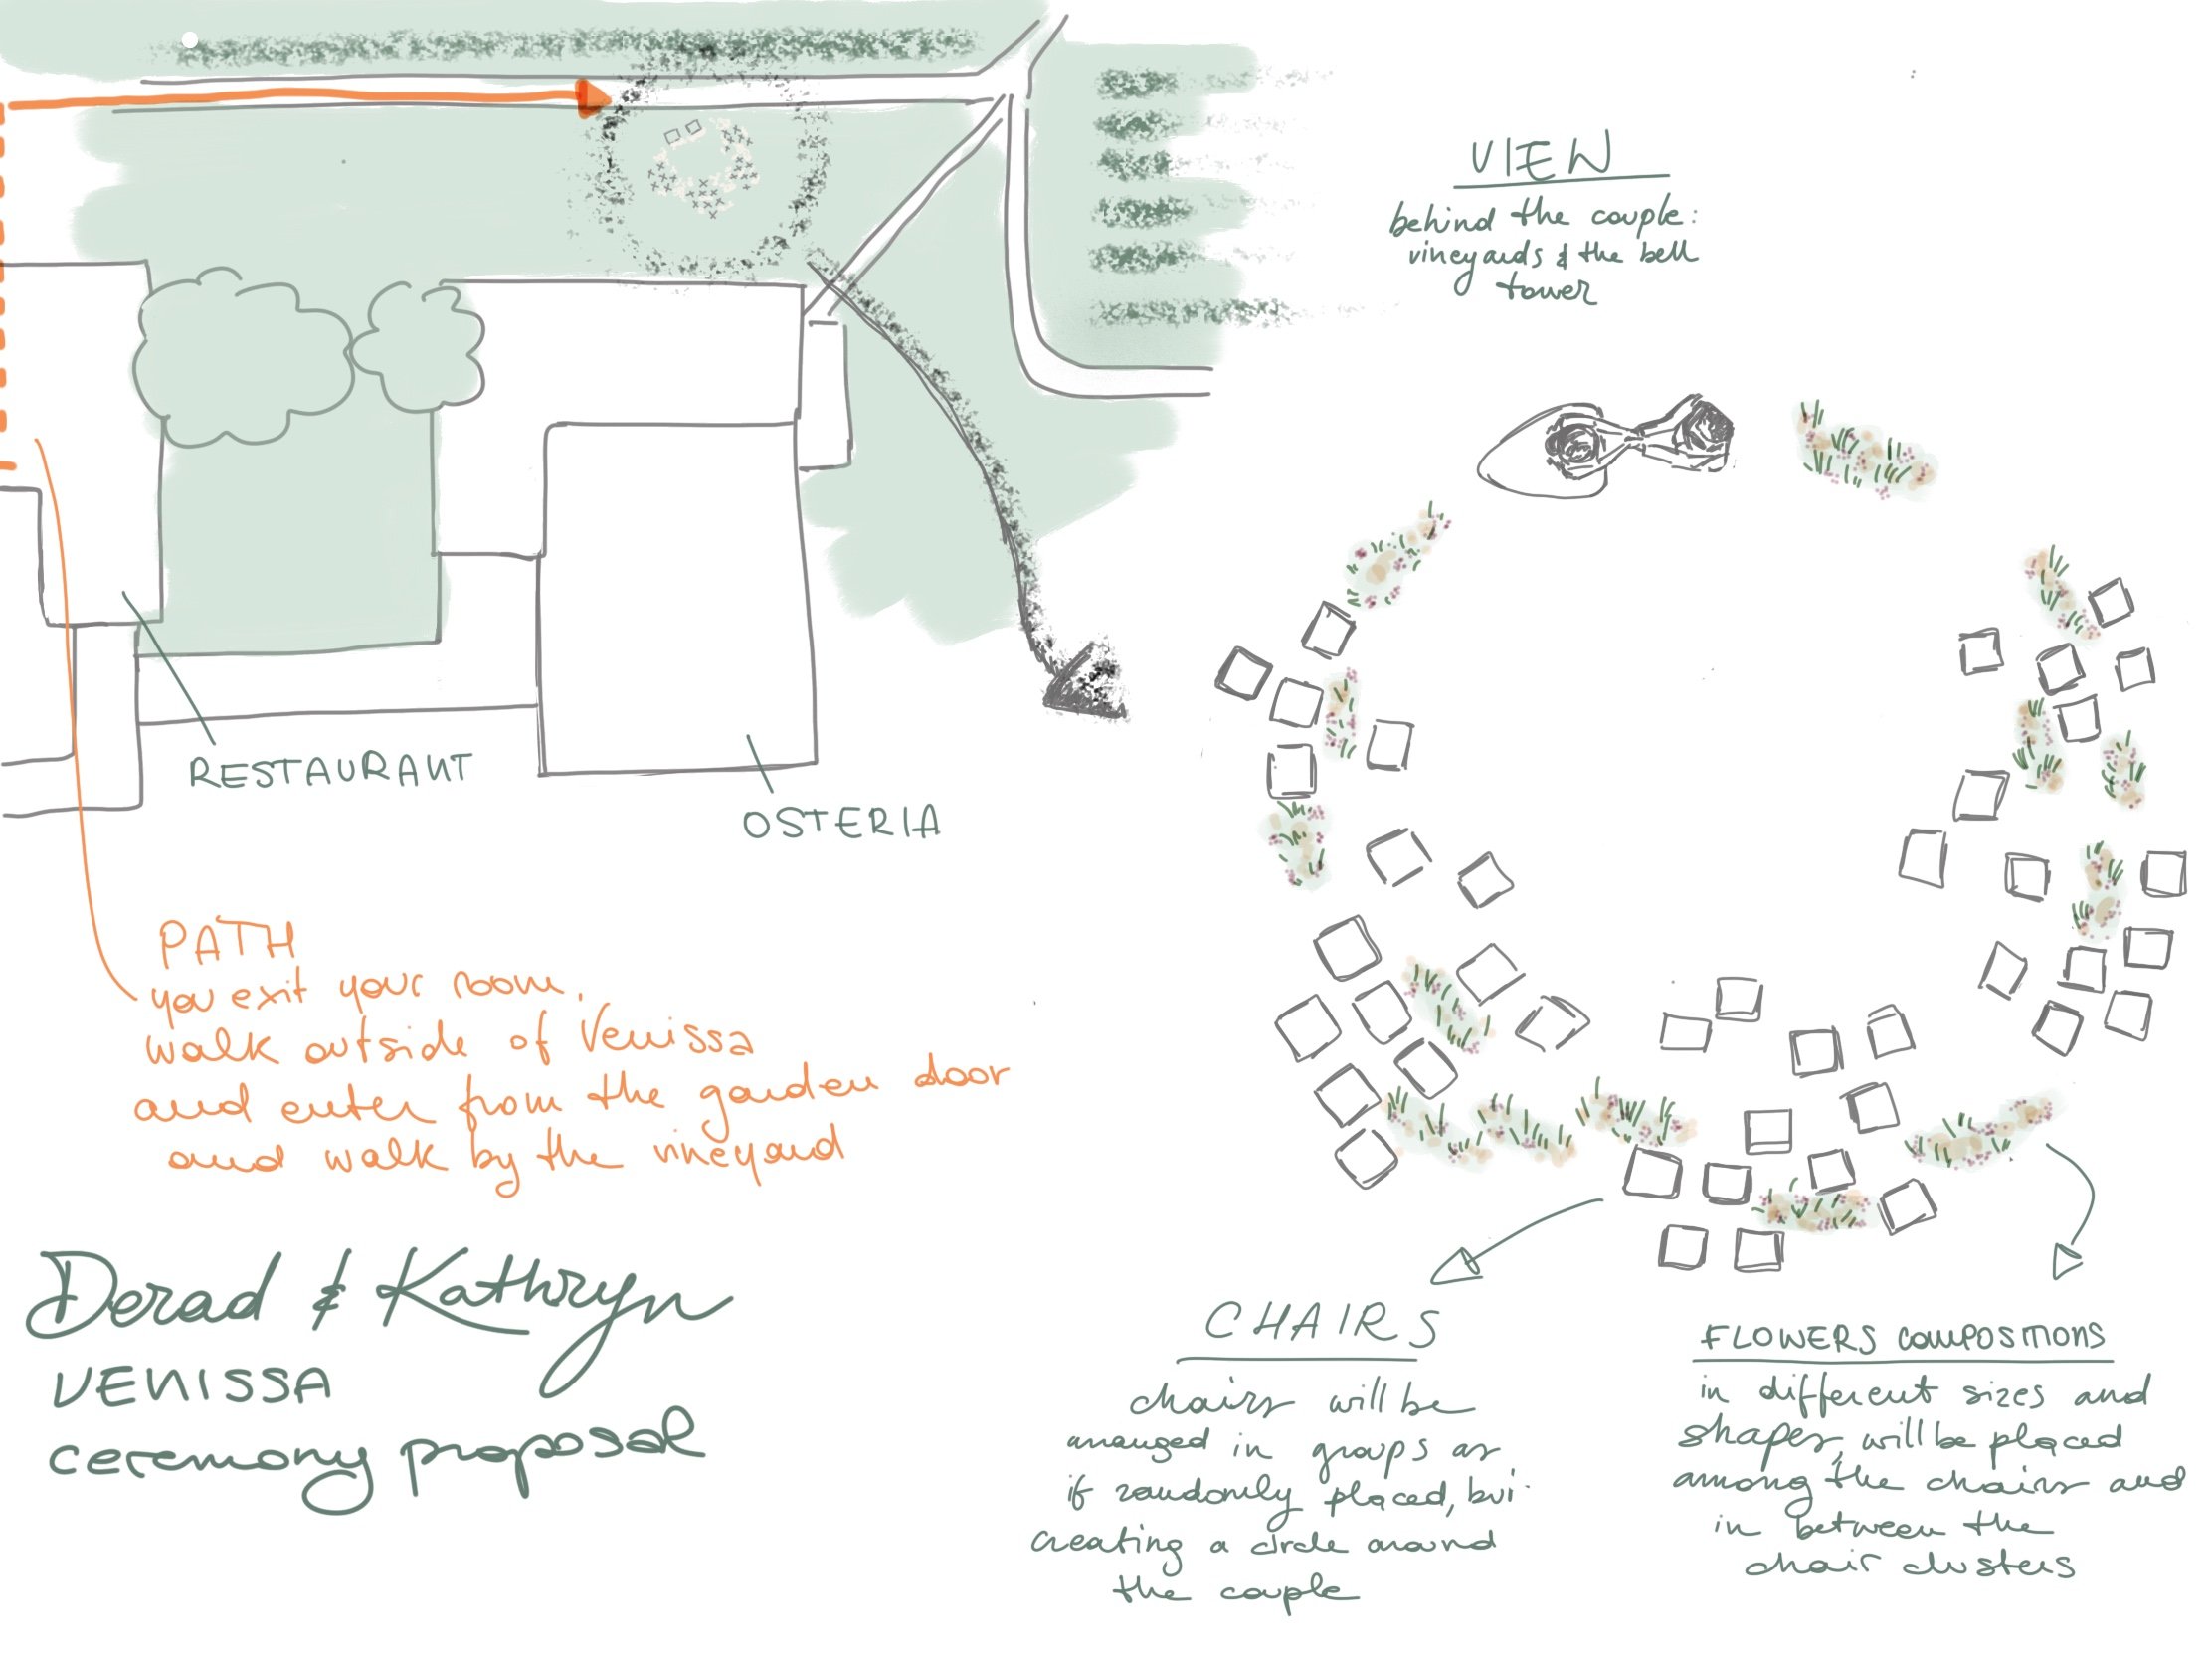 VIEW
behind the couple:
vineyards & the bell
tower
RESTAURANT
OSTERIA
PATH
you exit your room,
walk outside of Venissa
and enter from the garden door
and walk by the vineyard
Derad & Kathryn
VENISSA
ceremony proposal
CHAIRS
chairs will be
arranged in groups as
if randomly placed, but
creating a circle around
the couple
FLOWERS COMPOSITIONS
in different sizes and
shapes, will be placed
among the chairs and
in between the
chair clusters